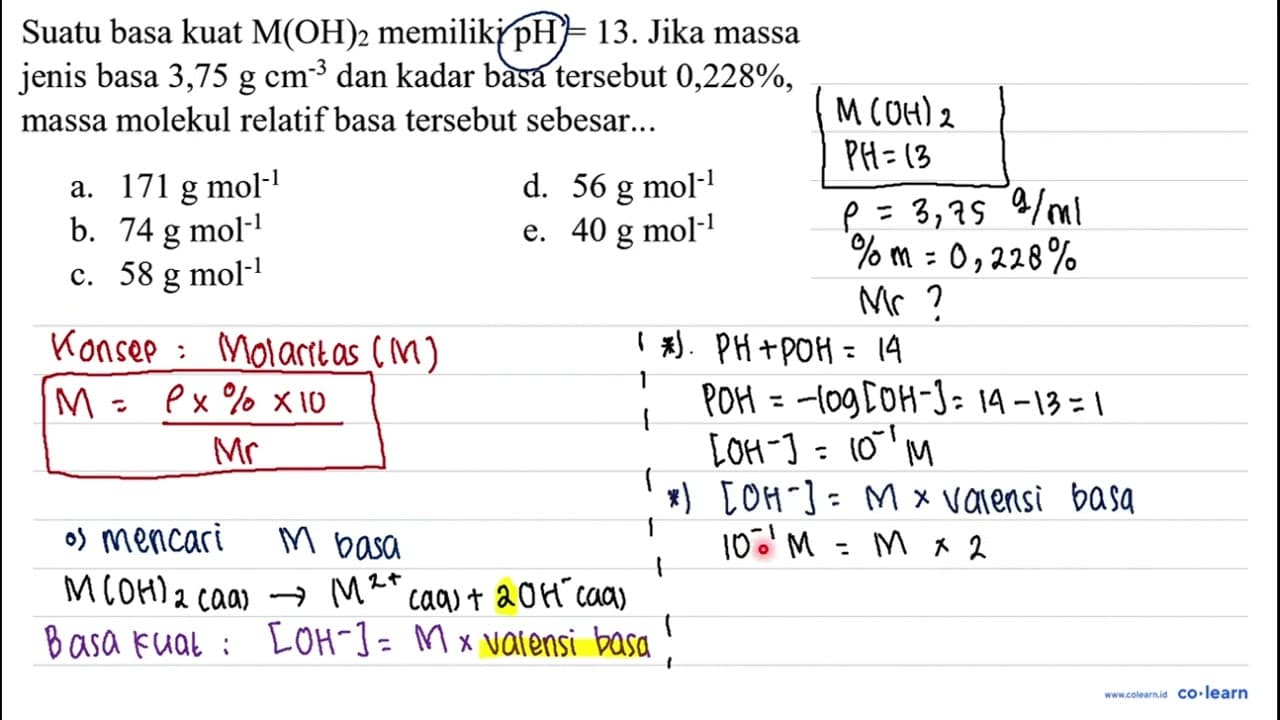 Suatu basa kuat M(OH)₂ memiliki pH = 13. Jika massa
jenis basa 3,75 g cm⁻³ dan kadar basa tersebut 0,228%,
massa molekul relatif basa tersebut sebesar...
a. 171 g mol⁻¹
b. 74 g mol⁻¹
c. 58 g mol⁻¹
d. 56 g mol⁻¹
e. 40 g mol⁻¹
M(OH)₂
PH = 13
ρ = 3,75 g/ml
% m = 0,228%
Mr ?
Konsep : Molaritas (M)
M = ρ x % x 10
Mr
•) mencari M basa
M(OH)₂ (aq) → M²⁺ (aq) + 2OH⁻ (aq)
Basa kuat : [OH⁻] = M x valensi basa
*). PH + POH = 14
POH = -log[OH⁻] = 14 - 13 = 1
[OH⁻] = 10⁻¹ M
*) [OH⁻] = M x valensi basa
10⁻¹ M = M x 2
www.colearn.id co·learn